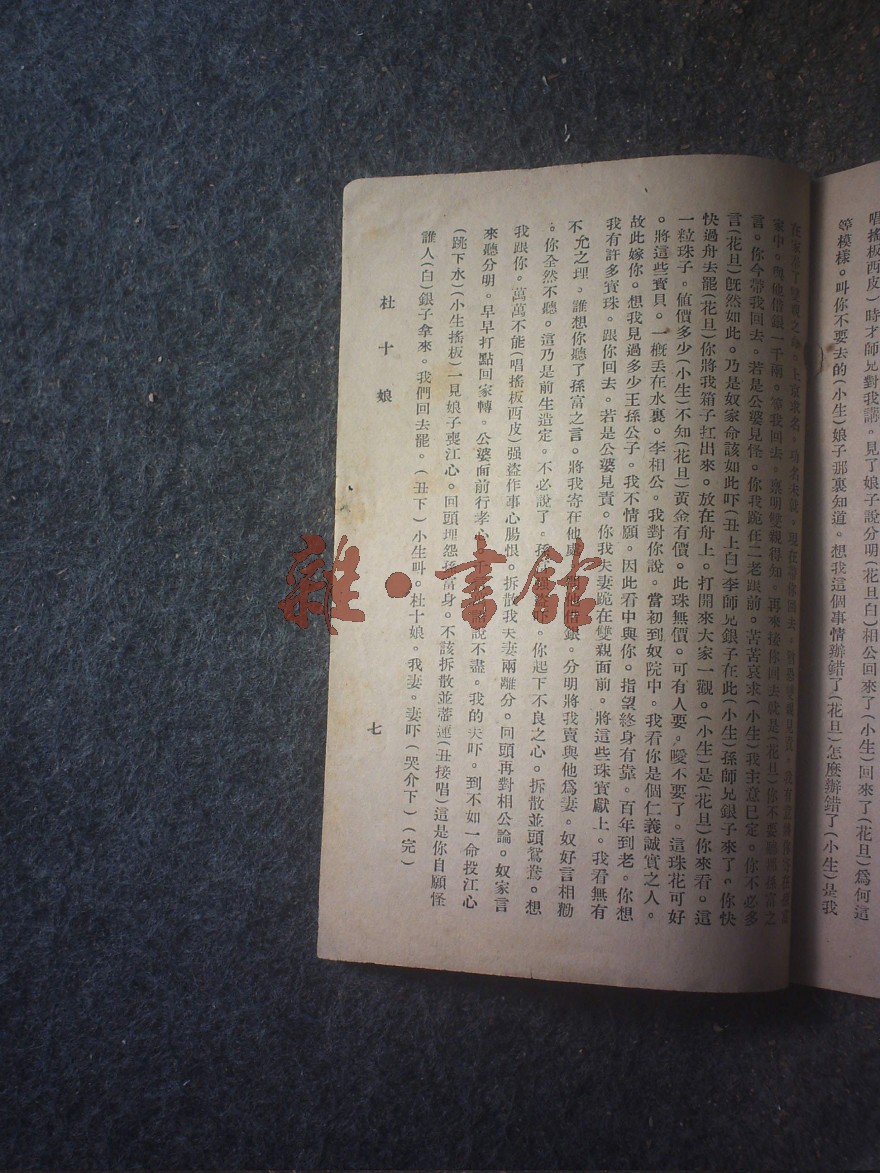 唱搖板西皮)時才師兄對我講。見了娘子說分明(花旦白)相公回來了(小生)回來了(花旦)爲何這
等模樣。叫你不要去的(小生)娘子那裏知道。想我這個事情辦錯了(花旦)怎麽辦錯了(小生)是我
上京求名
家中。借銀一千兩。等我回去。稟明雙親得知。再來接你回去就是(花旦)你不要聽那孫富之
言。你今帶我回去。若是公婆見怪。你我跪在二老跟前。苦苦哀求(小生)我主意已定。你不必多
言(花旦)旣然如此。乃是奴家命該如此吓(丑上白)李師兄銀子在此(小生)孫師兄銀子來了。你快
快過舟去罷(花旦)你將我箱子扛出來。放在舟上。打開來大家一觀。(小生)是(花旦)你來看。這
一粒珠子。値價多少(小生)不知(花旦)黃金有價。此珠無價。可有人要。噯不要了。這珠花可好
。將這些寳貝。一槪丟在水裏。李相公。我對你說。當初到奴院中。我看你是個仁義誠實之人。
故此嫁你。想我見過多少王孫公子。我不情願。因此看中與你。指望終身有靠。百年到老。你想
我有許多寳珠。跟你回去。若是公婆見責。你我夫妻跪在雙親面前。將這些珠寳獻上。我看無有
不允之理。誰想你聽了孫富之言。將我寄在他處。借銀。分明將我賣與他爲妻。奴好言相勸
。你全然不聽。這乃是前生造定。不必說了。孫。你起下不良之心。拆散並頭鴛鴦。想
我跟你。萬萬不能(唱搖板西皮)强盜作事心腸恨。拆散我夫妻兩離分。回頭再對相公論。奴家言
來聽分明。早早打點回家轉。公婆面前行孝心。說不盡。我的夫吓。到不如一命投江心
(跳下水)(小生搖板)一見娘子喪江心。回頭埋怨孫富身。不該拆散並蒂蓮(丑接唱)這是你自願怪
誰人(白)銀子拿來。我們回去罷。(丑下)小生叫。杜十娘。我妻。妻吓(哭介下)(完)
杜十娘
七
雜·書館